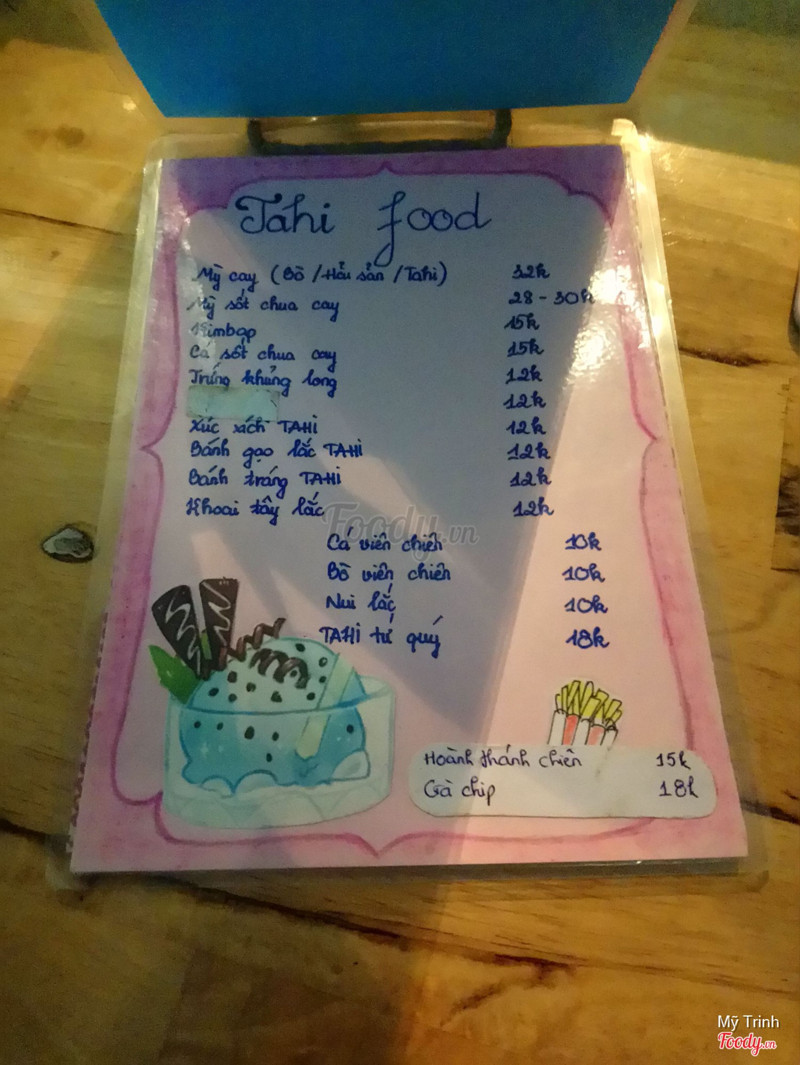 Tahi food
Mỳ cay (Bò / Hải sản / Tahi) 32k
Mỳ sốt chua cay 28 - 30k
Kimbap 15k
Cá sốt chua cay 15k
Trứng khủng long 12k
12k
Xúc xích TAHI 12k
Bánh gạo lắc TAHI 12k
Bánh tráng TAHI 12k
Khoai tây lắc 12k
Foody.vn
Cá viên chiên 10k
Bò viên chiên 10k
Nui lắc 10k
TAHI tứ quý 18k
Hoành thánh chiên 15k
Gà chip 18k
Mỹ Trinh
Foody.vn